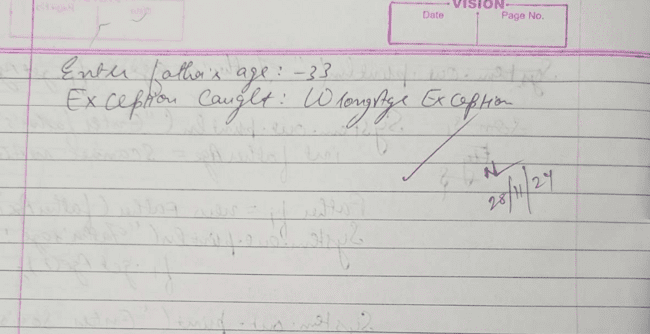 VISION
Date Page No.
Enter father's age: -33
Exception Caught: WrongAge Exception
28/11/24